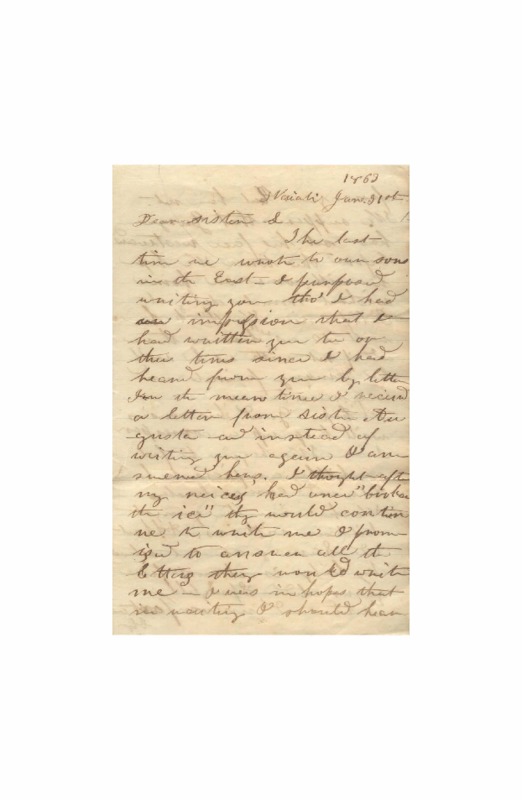 1863
Waiali Jan. 31st
Dear Sister L
The last
time we wrote to our sons
in the East - I purposed
writing you tho' I had
an impression that I
had written you two or
three times since I had
heard from you by letter
In the mean time I received
a letter from sister Au
gusta and instead of
writing you again I an
swered hers. I thought after
my neices had once "broken
the ice" they would contin
ue to write me I prom
ised to answer all the
letters they would write
me - I was in hopes that
in waiting I should hear